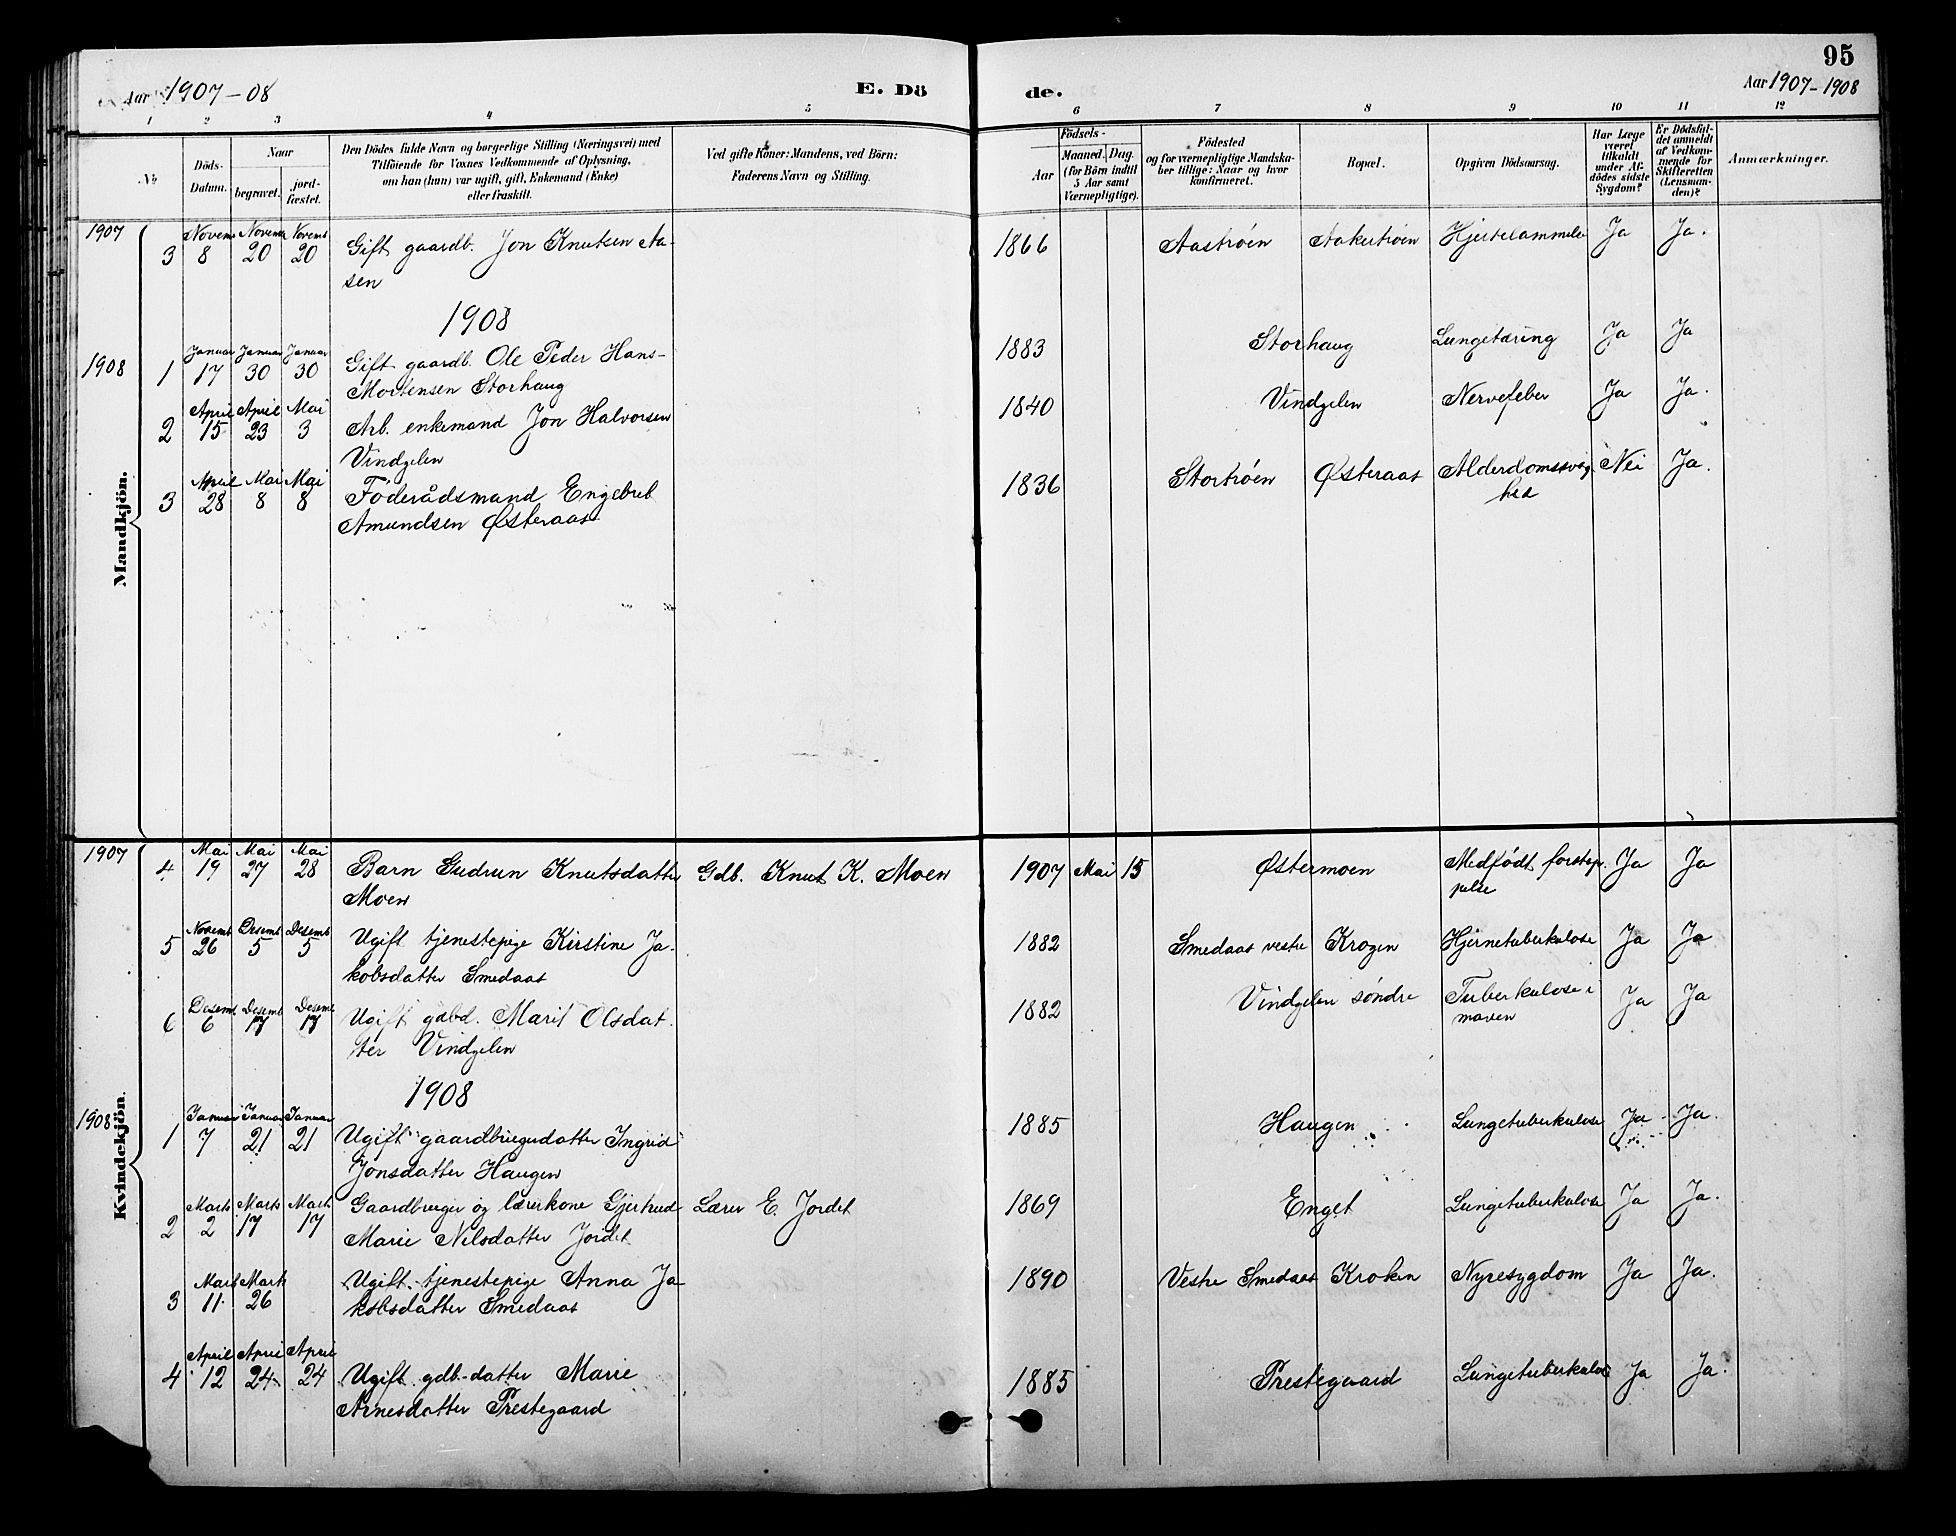 95
Aar 1907-08
E. Dö
de.
Aar 1907-1908
1 2 3 4 5 6 7 8 9 10 11 12
No
Döds-
Datum.
Naar
begravet.
jord-
fæstet.
Den Dödes fulde Navn og borgerlige Stilling (Næringsvei) med
Tilföiende for Voxnes Vedkommende af Oplysning,
om han (hun) var ugift, gift, Enkemand (Enke)
eller fraskilt.
Ved gifte Koner: Mandens, ved Börn:
Faderens Navn og Stilling.
Födsels-
Aar
Maaned. Dag.
(for Börn indtil
5 Aar samt
Værnepligtige).
Födested
og for værnepligtige Mandska-
ber tillige: Naar og hvor
konfirmeret.
Bopæl.
Opgiven Dödsaarsag.
Har Læge
været
tilkaldt
under Af-
dödes sidste
Sygdom?
Er Dödsfal-
det anmeldt
af Vedkom-
mende for
Skifteretten
(Lensman-
den)?
Anmærkninger.
Mandkjön.
1907
3 Novem 8 Novem 20 Novemb 20 Gift gaardb. Jon Knutsen Aa-
sen
1866 Aastrøen Aakertrøen Hjertelammelse Ja Ja.
1908
1908
1 Januar 17 Januar 30 Januar 30 Gift gaardb. Ole Peder Hans-
Mortensen Storhaug
1883 Storhaug Lungetæring Ja Ja
2 April 15 April 23 Mai 3 Arb. enkemand Jon Halvorsen
Vindgelen
1840 Vindgelen Nervefeber Ja Ja.
3 April 28 Mai 8 Mai 8 Føderådsmand Engebret
Amundsen Østeraas
1836 Stortrøen Østeraas Alderdomssvag
hed
Nei Ja.
Kvindekjön.
1907
4 Mai 19 Mai 27 Mai 28 Barn Gudrun Knutsdatter
Moen
Gdb. Knut K. Moen
1907 Mai 15 Østermoen Medfødt forstop.
pelse
Ja Ja
5 Novemb 26 Desemb 5 Desemb 5 Ugift tjenestepige Kirstine Ja-
kobsdatter Smedaas
1882 Smedaas vestre Krogen Hjernetuberkulose Ja Ja
6 Desemb 6 Desemb 17 Desemb 17 Ugift gdbd. Marit Olsdat-
ter Vindgelen
1882 Vindgelen søndre Tuberkulose i
maven
Ja Ja
1908
1908
1 Januar 7 Januar 21 Januar 21 Ugift gaardbrugerdatter Ingrid
Jonsdatter Haugen
1885 Haugen Lungetuberkulose Ja Ja.
2 Marts 2 Marts 17 Marts 17 Gaardbruger og lærerkone Gjertrud
Marie Nilsdatter Jordet
Lærer E. Jordet
1869 Enget Lungetuberkulose Ja Ja.
3 Marts 11 Marts 26 Ugift tjenestepige Anna Ja
kobsdatter Smedaas
1890 Vestre Smedaas Kroken Nyresygdom Ja Ja.
4 April 12 April 24 April 24 Ugift gdb.-datter Marie
Arnesdatter Prestegaard
1885 Prestegaard Lungetuberkulose Ja Ja.